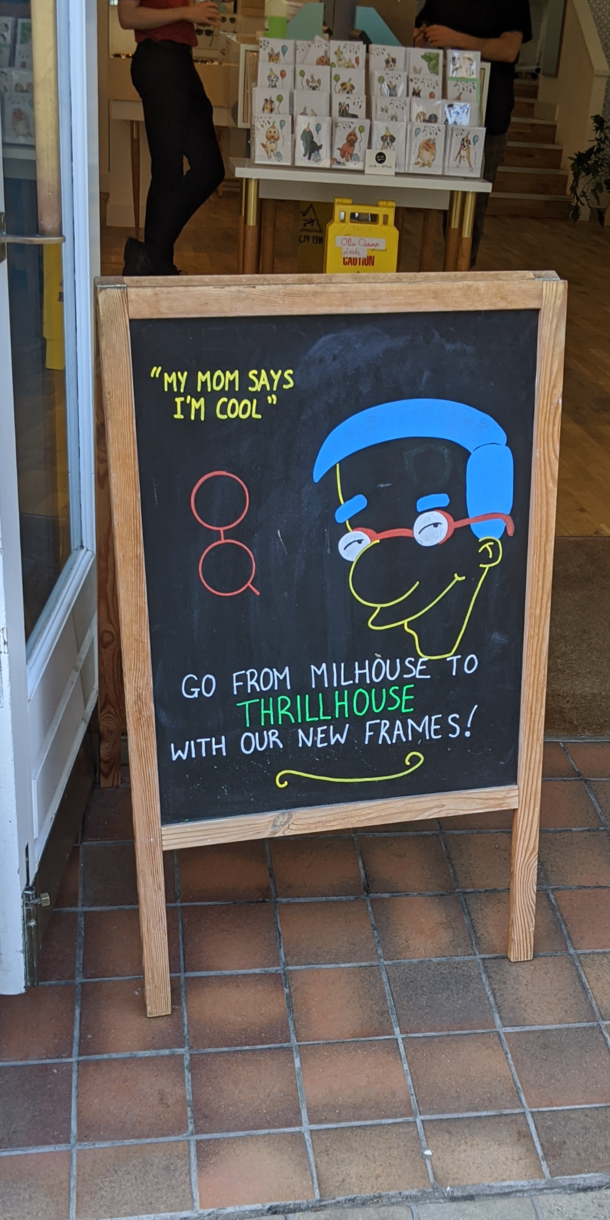 CAUTION
"MY MOM SAYS
I'M COOL"
GO FROM MILHOUSE TO
THRILLHOUSE
WITH OUR NEW FRAMES!